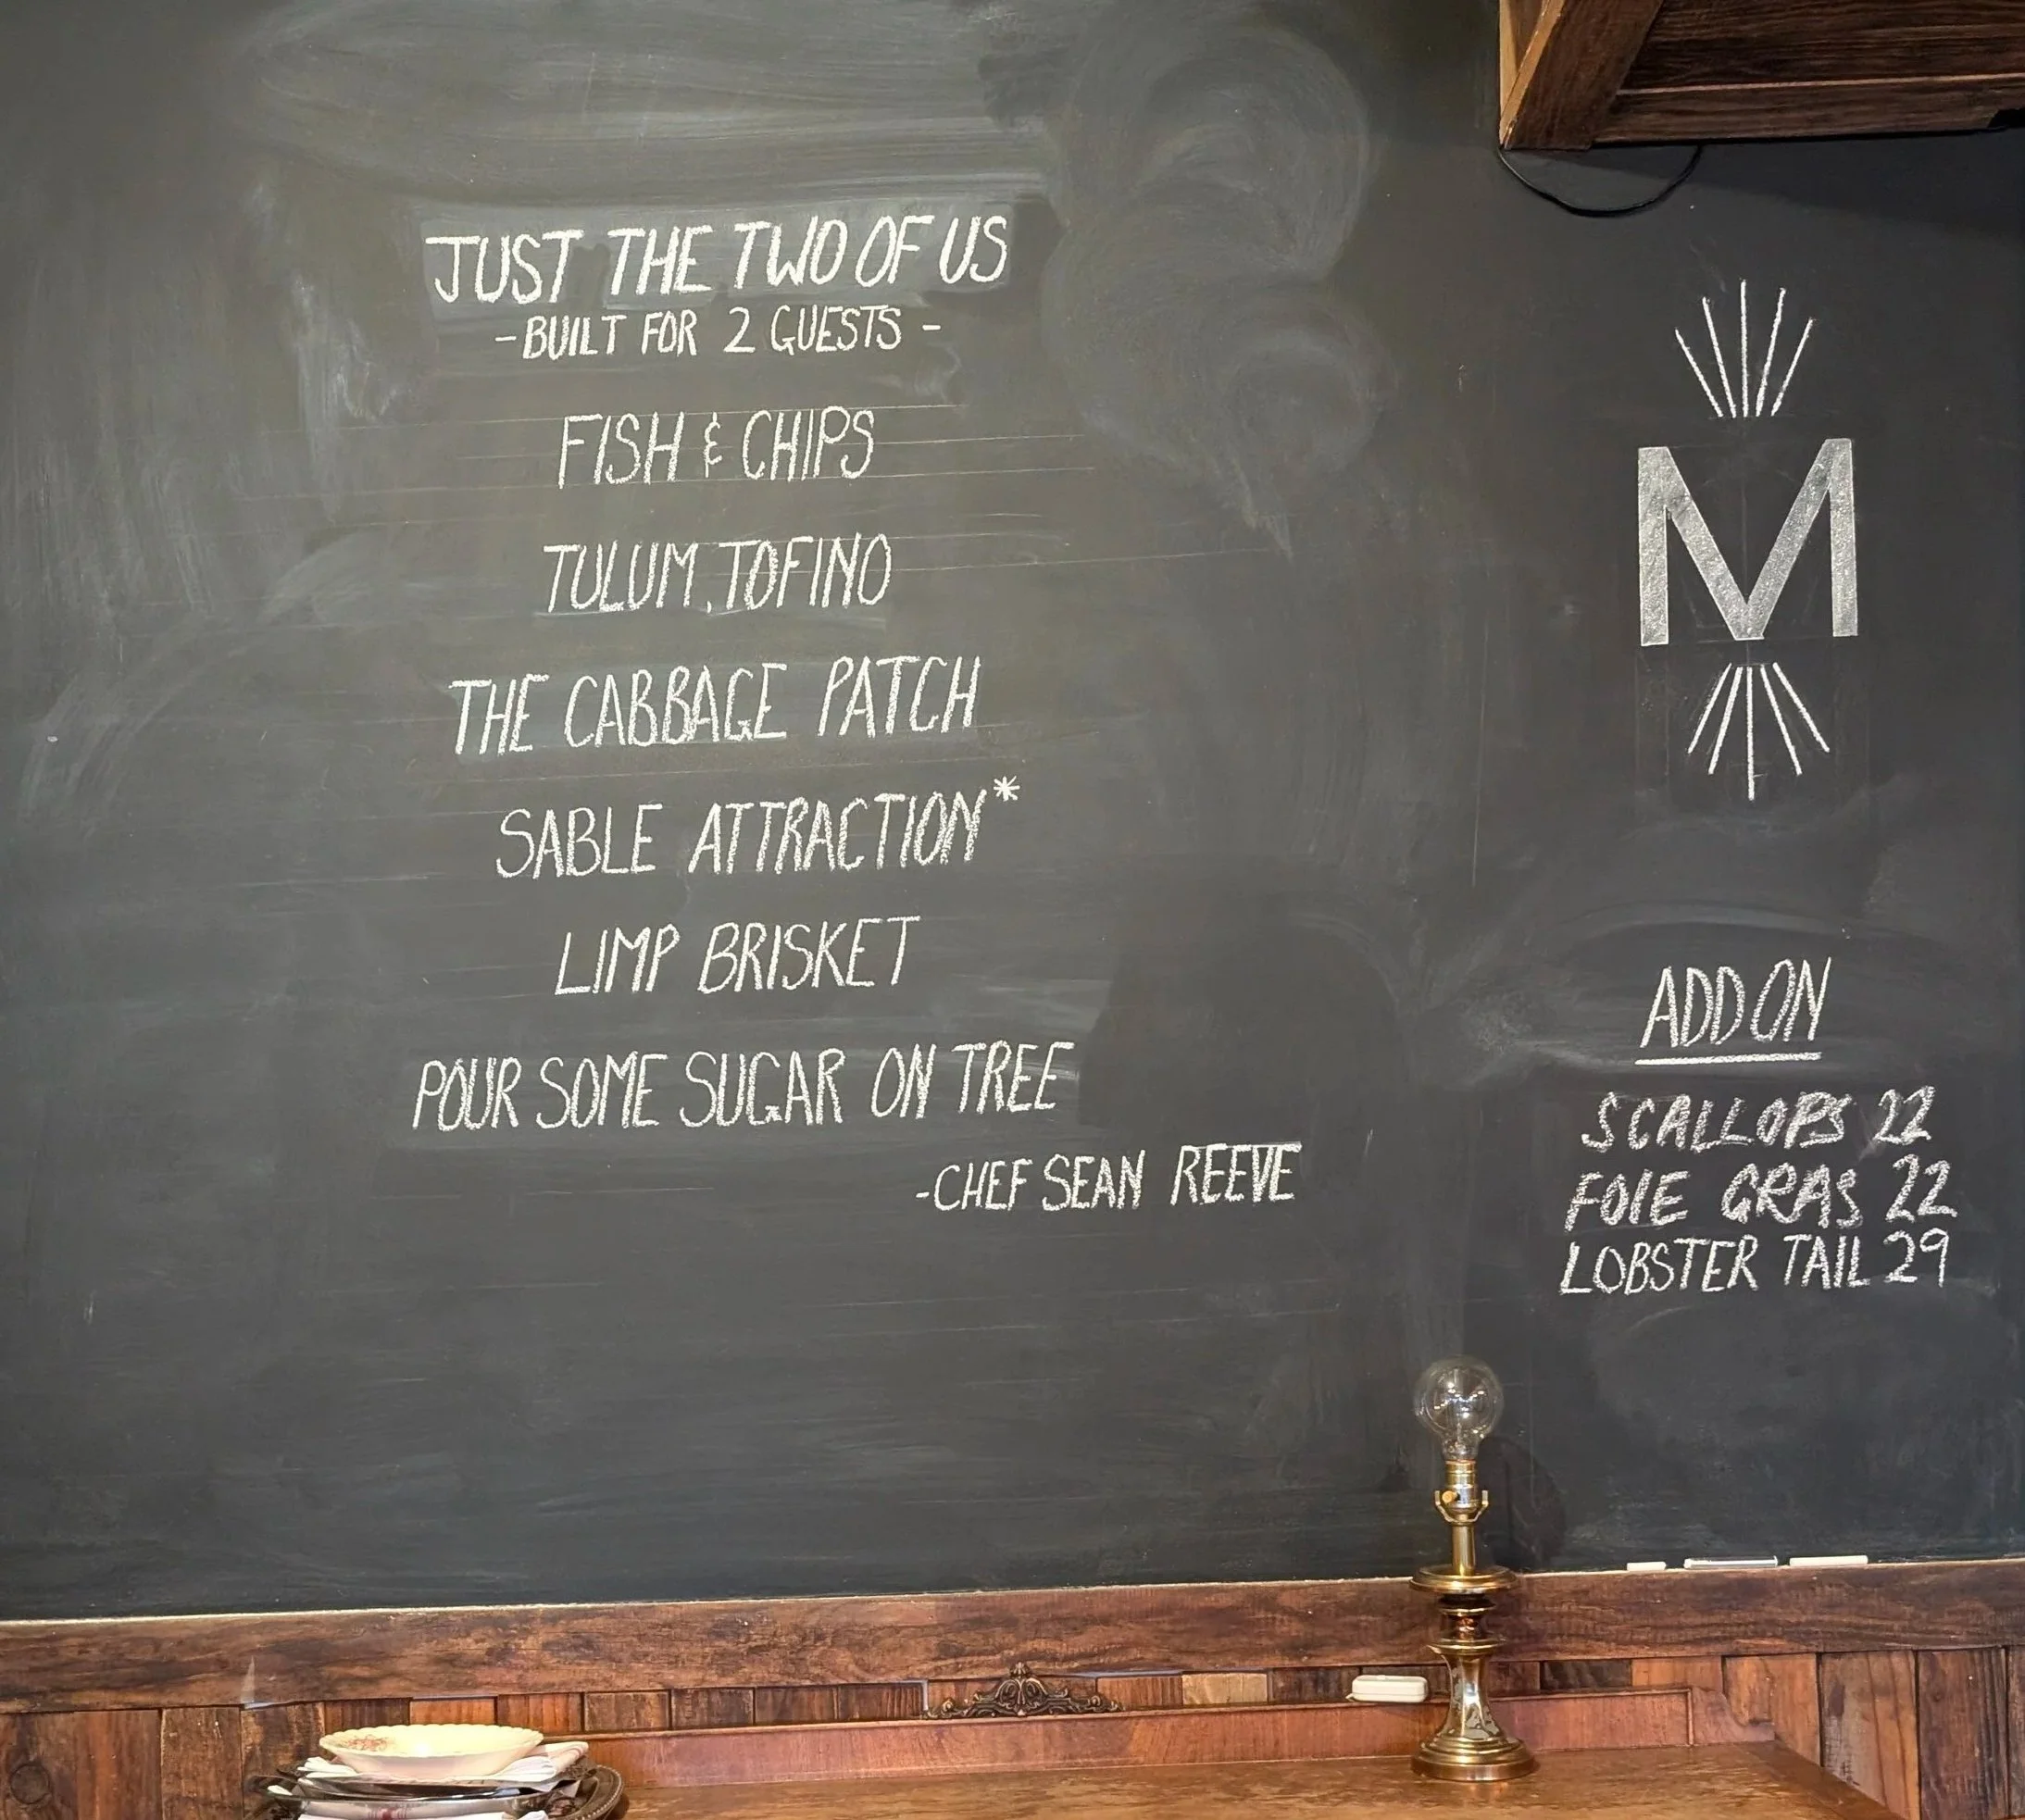 JUST THE TWO OF US
-BUILT FOR 2 GUESTS-
FISH & CHIPS
TULUM, TOFINO
THE CABBAGE PATCH
SABLE ATTRACTION*
LIMP BRISKET
POUR SOME SUGAR ON TREE
-CHEF SEAN REEVE
M
ADD ON
SCALLOPS 22
FOIE GRAS 22
LOBSTER TAIL 29